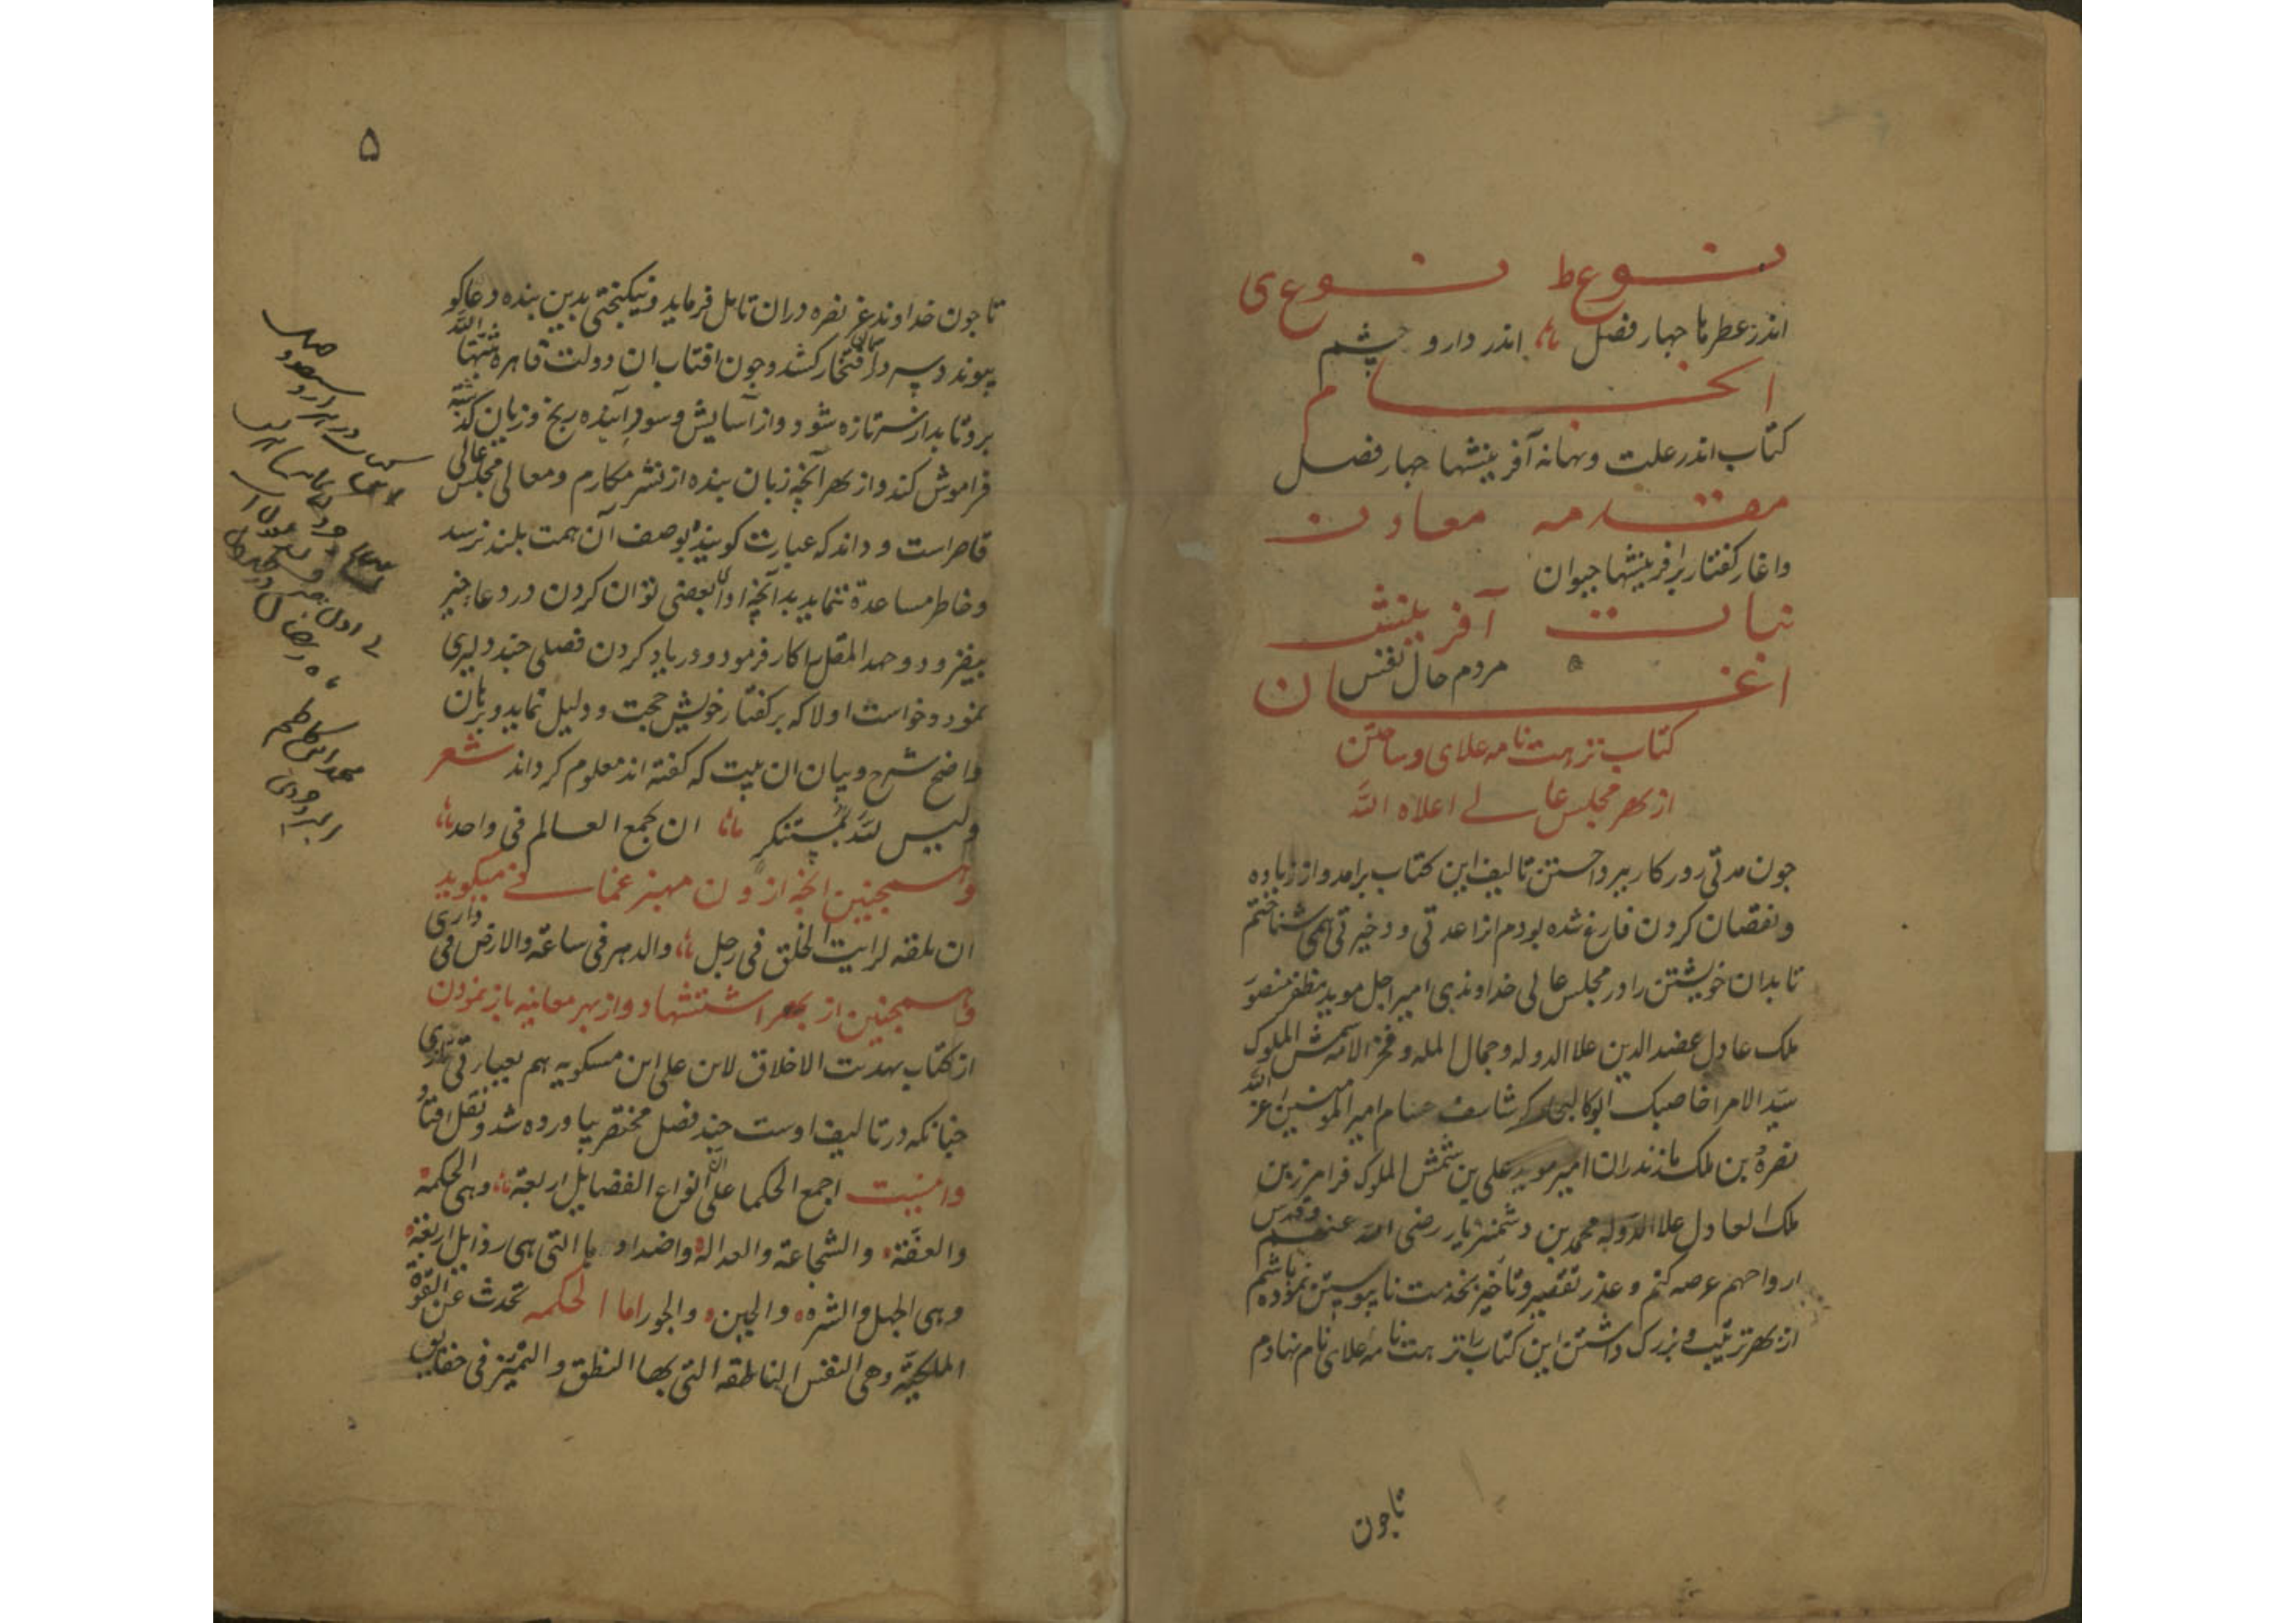 نوع ط نوع ی
اندر عطرها جهار فصل اندر دارو جشم
انجام
کتاب اندر علت و بهانه آفرینشها جهار فصل
مقدمه معادن
واغاز کفتار بر افرینشها حیوان
نبات آفرینش
مردم حال نفس
اغـــــــان
کتاب نزهت نامه علای و ساختن
از بهر مجلس عالی اعلاه الله
جون مدتی روزکار ببرداختن تالیف این کتاب برامد و از زیاده
و نقصان کردن فارغ شده بودم انرا عدتی و ذخیرتی همی شناختم
تا بدان خویشتن را در مجلس عالی خداوندی امیر اجل موید مظفر منصور
ملک عادل عضد الدین علا الدوله و جمال المله و فخر الامه شمس الملوک
سید الامرا خاصبک ابو کالیجار کرشاسف حسام امیر المومنین اعز الله
نصره بن ملک مازندران امیر موید علی بن شمس الملوک فرامرز بن
ملک العادل علا الدوله محمد بن دشمنزیار رضی الله عنهم و قدس
ارواحهم عرضه کنم و عذر تقصیر و تاخیر بخدمت نا پیوستن نموده باشم
از بهر ترتیب و بزرک داشتن این کتاب را نزهت نامه علای نام نهادم
تا جون
۵
تا جون خداوند عز نصره دران تامل فرماید و نیکبختی بدین بنده دعاکو
پیوندد سر در افتخار کشد و جون افتاب ان دولت قاهره ثبتها الله
برو تابد از سر تازه شود و از آسایش و سود آینده رنج و زیان کذشته
فراموش کند و از بهر آنجه زبان بنده از نشر مکارم و معالی مجلس عالی
قاصر است و داند که عبارت کوینده بوصف آن همت بلند نرسد
و خاطر مساعدة ننماید بدآنجه ادا بعضی توان کردن در دعا خیر
بیفزود و جهد المقل را کار فرمود و در یاد کردن فصلی جند دلیری
نمود و خواست اولا که بر کفتار خویش حجت و دلیل نماید و برهان
واضح شرح و بیان ان بیت که کفته اند معلوم کرداند شعر
ولیس لله بمستنکر ان یجمع العالم فی واحد
و همجنین انجه از ون میکوید
ان تلقه لرایت الخلق فی رجل والدهر فی ساعة والارض فی داری
و همجنین از بهر استشهاد و از بهر معاینه باز نمودن
از کتاب تهذیت الاخلاق لابن علی ابن مسکویه هم بعبارتی تازی
جنانکه در تالیف اوست جند فصل مختصر بیاورده شد و نقل افتاد
و اینست اجمع الحکما علی ان انواع الفضایل اربعة وهی الحکمة
والعفة والشجاعة والعدالة واضدادها التی هی رذایل اربعة
وهی الجهل والشره والجبن والجور اما الحکمه تحدث عن القوة
الملکیة وهی النفس الناطقه التی بها النطق و التمیز فی حقایق